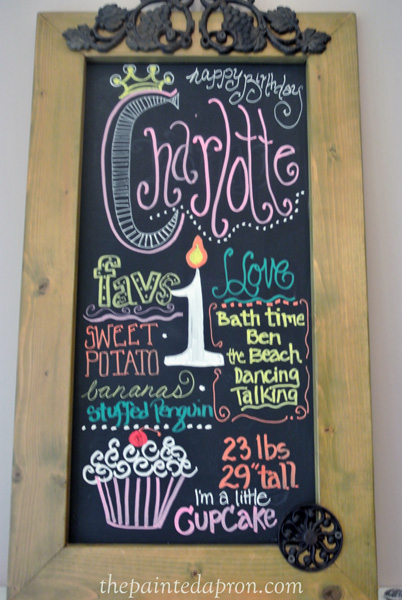 happy Birthday
Charlotte
favs
SWEET
POTATO
bananas
Stuffed Penguin
1
I Love
Bath time
Ben
the Beach
Dancing
Talking
23 lbs
29" tall
I'm a little
CUPCAKE
thepaintedapron.com